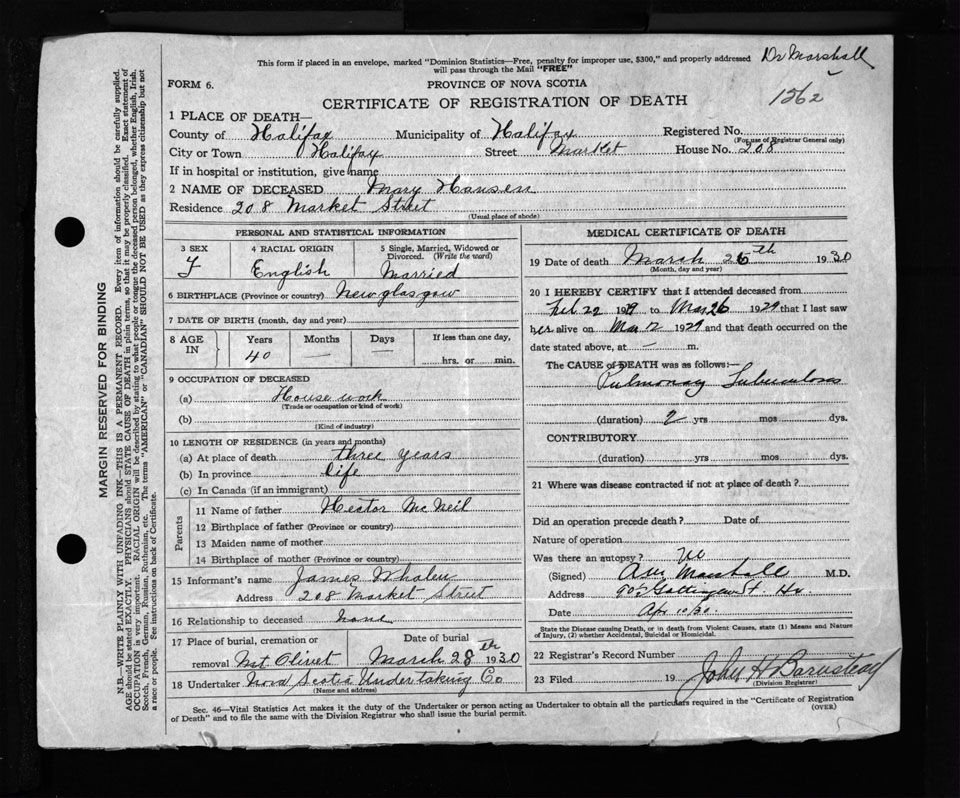 This form if placed in an envelope, marked "Dominion Statistics—Free, penalty for improper use, $300," and properly addressed
will pass through the Mail "FREE"
Dr Marshall
FORM 6.
PROVINCE OF NOVA SCOTIA
CERTIFICATE OF REGISTRATION OF DEATH
1262
1 PLACE OF DEATH—
County of Halifax Municipality of Halifax Registered No.
(For use of Registrar General only)
City or Town Halifax Street Market House No. 208
If in hospital or institution, give name
2 NAME OF DECEASED Mary Hansen
Residence 208 Market Street
(Usual place of abode)
PERSONAL AND STATISTICAL INFORMATION
3 SEX 4 RACIAL ORIGIN 5 Single, Married, Widowed or
Divorced. (Write the word)
F English Married
6 BIRTHPLACE (Province or country) New glasgow
7 DATE OF BIRTH (month, day and year)
8 AGE IN Years Months Days If less than one day,
40 — — hrs. or min.
9 OCCUPATION OF DECEASED
(a) House work
(Trade or occupation or kind of work)
(b)
(Kind of industry)
10 LENGTH OF RESIDENCE (in years and months)
(a) At place of death three years
(b) In province Life
(c) In Canada (if an immigrant)
Parents
11 Name of father Hector McNeil
12 Birthplace of father (Province or country)
13 Maiden name of mother
14 Birthplace of mother (Province or country)
15 Informant's name James Whalen
Address 208 Market Street
16 Relationship to deceased none
17 Place of burial, cremation or Date of burial
removal Mt Olivet March 28th 1930
18 Undertaker Nova Scotia Undertaking Co
(Name and address)
MEDICAL CERTIFICATE OF DEATH
19 Date of death March 26th 1930
(Month, day and year)
20 I HEREBY CERTIFY that I attended deceased from
Feb 22 1929 to Mar 26 1929 that I last saw
her alive on Mar 12 1929 and that death occurred on the
date stated above, at — m.
The CAUSE of DEATH was as follows:—
Pulmonary Tuberculosis
(duration) 2 yrs mos dys.
CONTRIBUTORY
(duration) yrs mos dys.
21 Where was disease contracted if not at place of death?
Did an operation precede death? Date of
Nature of operation
Was there an autopsy? No
(Signed) Marshall M.D.
Address Gottingen St. Hx.
Date Apr 10/30.
State the Disease causing Death, or in death from Violent Causes, state (1) Means and Nature
of Injury, (2) whether Accidental, Suicidal or Homicidal.
22 Registrar's Record Number
23 Filed 19 John H Barnstead
(Division Registrar)
Sec. 46—Vital Statistics Act makes it the duty of the Undertaker or person acting as Undertaker to obtain all the particulars required in the "Certificate of Registration
of Death" and to file the same with the Division Registrar who shall issue the burial permit.
(OVER)
MARGIN RESERVED FOR BINDING
N.B.—WRITE PLAINLY WITH UNFADING INK—THIS IS A PERMANENT RECORD. Every item of information should be carefully supplied.
AGE should be stated EXACTLY. PHYSICIANS should STATE CAUSE OF DEATH in plain terms, so that it may be properly classified. Exact statement of
OCCUPATION is very important. RACIAL ORIGIN will be described by stating to what people or tongue the deceased person belonged, whether English, Irish,
Scotch, French, German, Russian, Ruthenian, etc. The terms "AMERICAN" or "CANADIAN" SHOULD NOT BE USED as they express citizenship but not
a race or people. See instructions on back of Certificate.